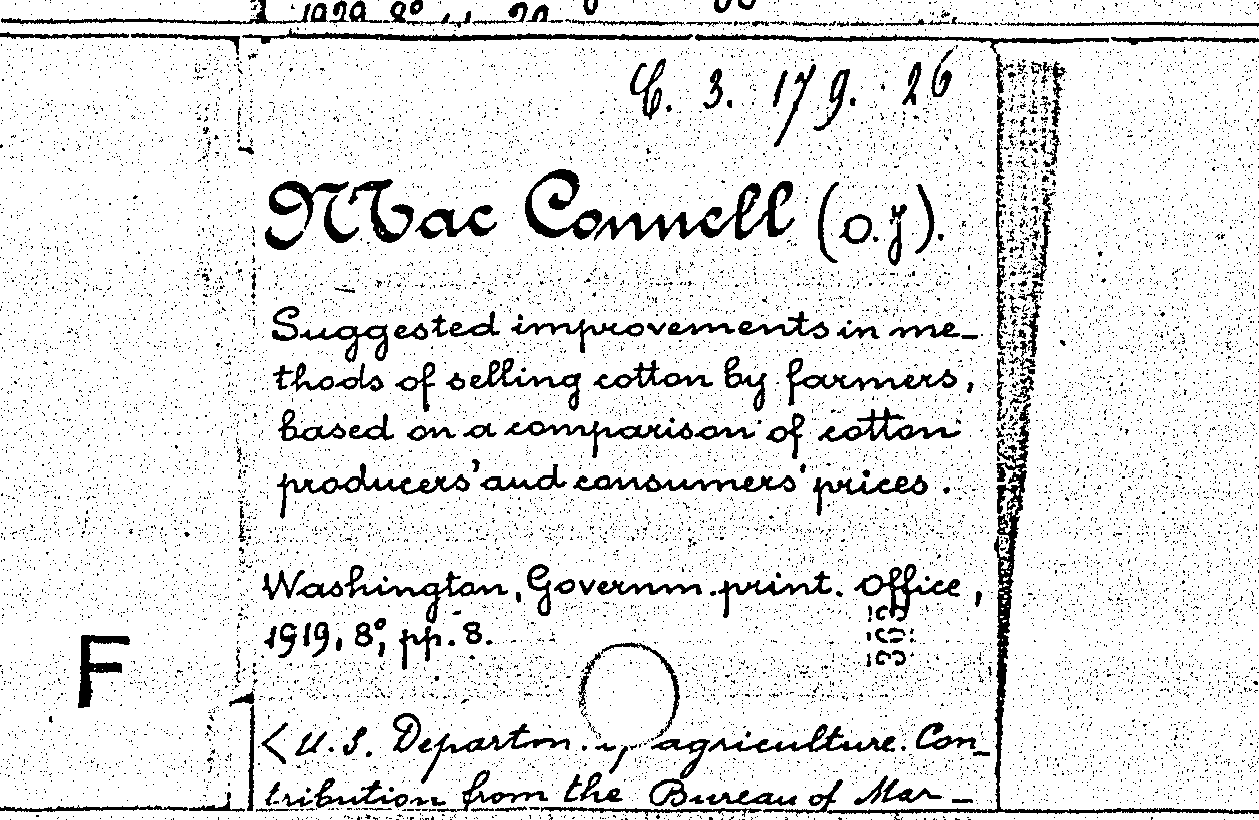 1929. 8°
C. 3. 179. 26
Mac Connell (O. J).
Suggested improvements in me-
thods of selling cotton by farmers,
based on a comparison of cotton
producers' and consumers' prices.
Washington, Governm. print. Office,
1919, 8°, pp. 8.
303
F
< U. S. Departm. agriculture. Con-
tribution from the Bureau of Mar-